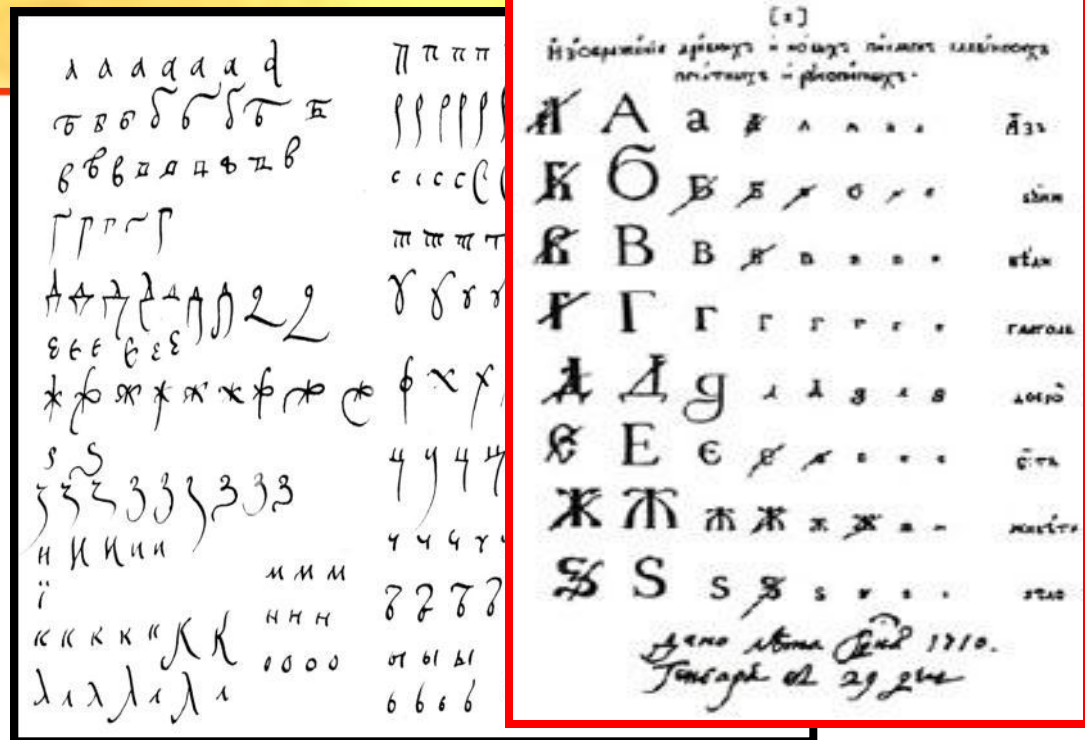 а а а а а а а
б б б б б б б б
в в в в в в в в в
г г г г г
д д д д д д д д д
є є є є є є
ж ж ж ж ж ж ж ж ж
ѕ ѕ
з з з з з з з з з
н н н и и
ї
к к к к к к к
л л л л л л л
м м м
н н н
о о о о
п п п п
р р р р р
с с с с с
т т т т
ф х х
ч ч ч ч
ч ч ч ч
ы ы ы
ь ь ь ь
[1]
Изображенїе древнихъ и новыхъ писменъ славенскихъ
печатныхъ и рꙋкописныхъ.
А А а а а а а а Азъ
Б Б Б Б Б б б б Бꙋки
В В В В в в в в вѣди
Г Г Г Г Г Г Г Г глаголь
Д Д д д д д д д добро
Є Е є є є є є є єсть
Ж Ж Ж Ж ж Ж ж ж живѣте
Ѕ Ѕ ѕ Ѕ ѕ ѕ ѕ ѕ ѕѣло
Дано лѣта Господня 1710.
Генваря въ 29 день